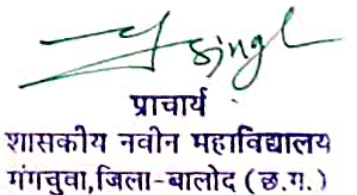 Singh
प्राचार्य
शासकीय नवीन महाविद्यालय
गंगचुवा,जिला-बालोद (छ.ग.)